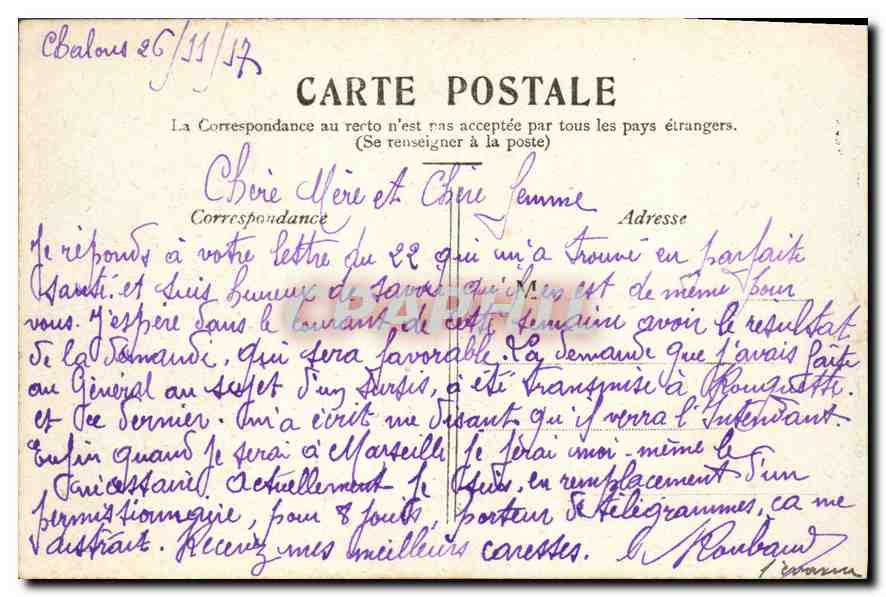 Chalons 26/11/17
CARTE POSTALE
La Correspondance au recto n'est pas acceptée par tous les pays étrangers.
(Se renseigner à la poste)
Chère Mère et Chère femme
Correspondance Adresse
Je réponds à votre lettre du 22 qui m'a trouvé en parfaite
santé et suis heureux de savoir qu'il en est de même pour
vous. J'espère dans le courant de cette semaine avoir le resultat
de la demande, qui sera favorable. La demande que j'avais faite
au Général au sujet d'un sursis, a été transmise à Rouquette.
et ce dernier m'a écrit me disant qu'il verra l'Intendant.
Enfin quand je serai à Marseille je ferai moi-même le
nécessaire. Actuellement je suis, en remplacement d'un
permissionnaire, pour 8 jours, porteur de télégrammes, ça me
distrait. Recevez mes meilleurs caresses. Roubaud
M
CPAPHIL